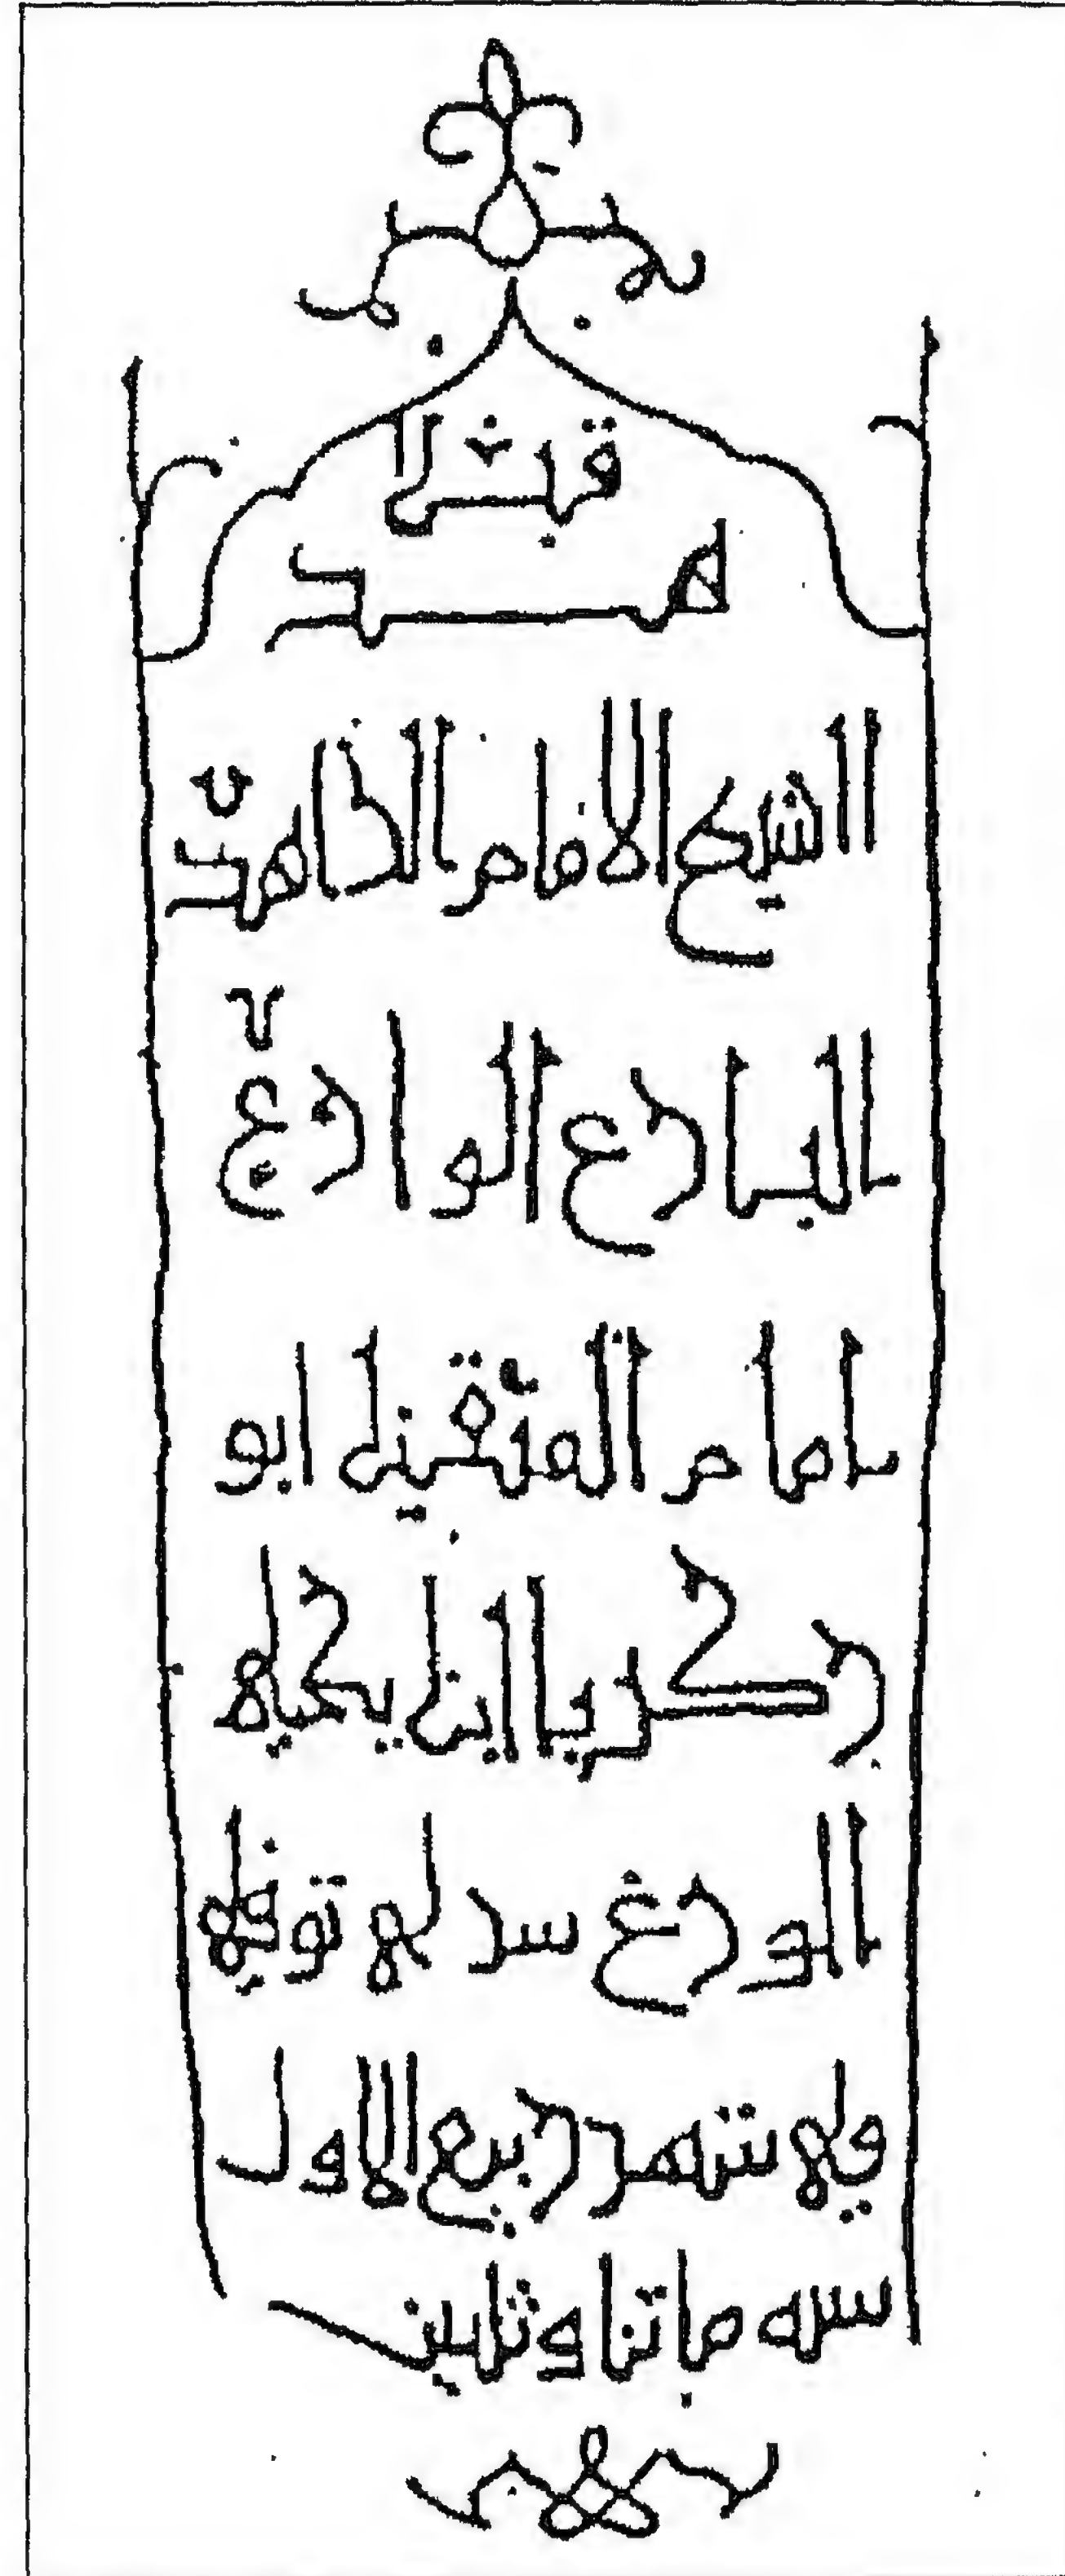 هد
الشيخ الامام الزاهد
البارع الوارع
امام المتقين ابو
زكريا ابن يحيى
الورع توفى
فى شهر ربيع الاول
سنه ماتنا وثلثين